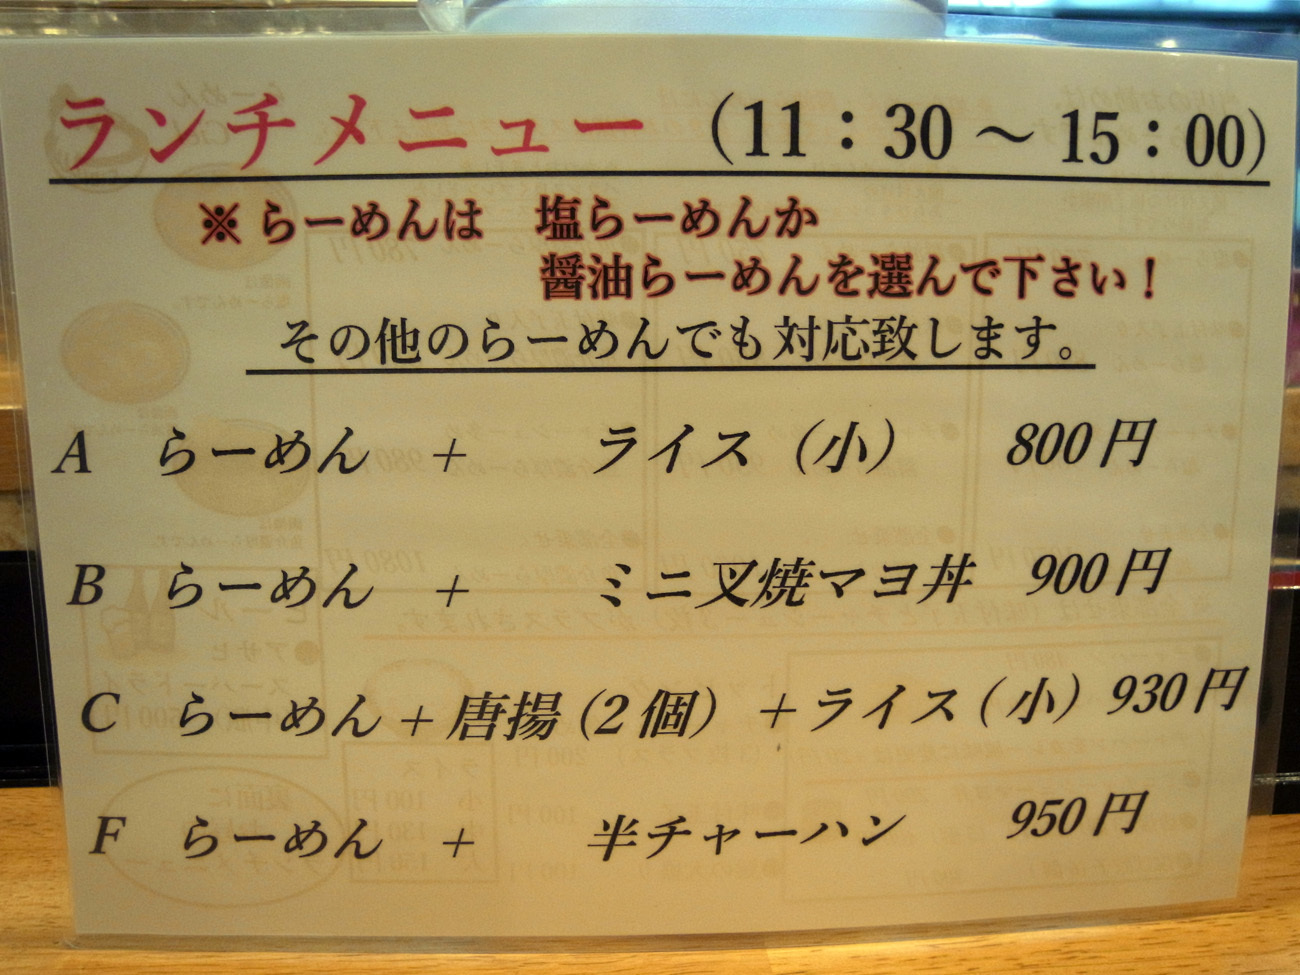 ランチメニュー （11：30～15：00）
※らーめんは 塩らーめんか
醤油らーめんを選んで下さい！
その他のらーめんでも対応致します。
A らーめん ＋ ライス（小） 800円
B らーめん ＋ ミニ叉焼マヨ丼 900円
C らーめん＋唐揚（2個）＋ライス（小）930円
F らーめん ＋ 半チャーハン 950円